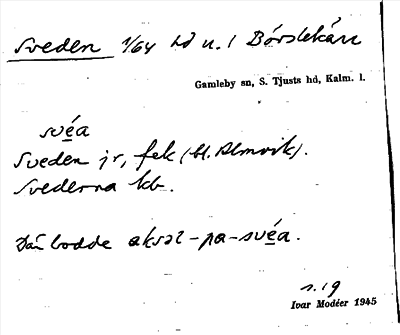 Sveden 1/64 hd u. l Börslekärr
Gamleby sn, S. Tjusts hd, Kalm. l.
svéa
Sveden jr, fek (bl. Almvik).
Svederna kb.
Där bodde aksəl-pa-svéa.
s. 19
Ivar Modéer 1945